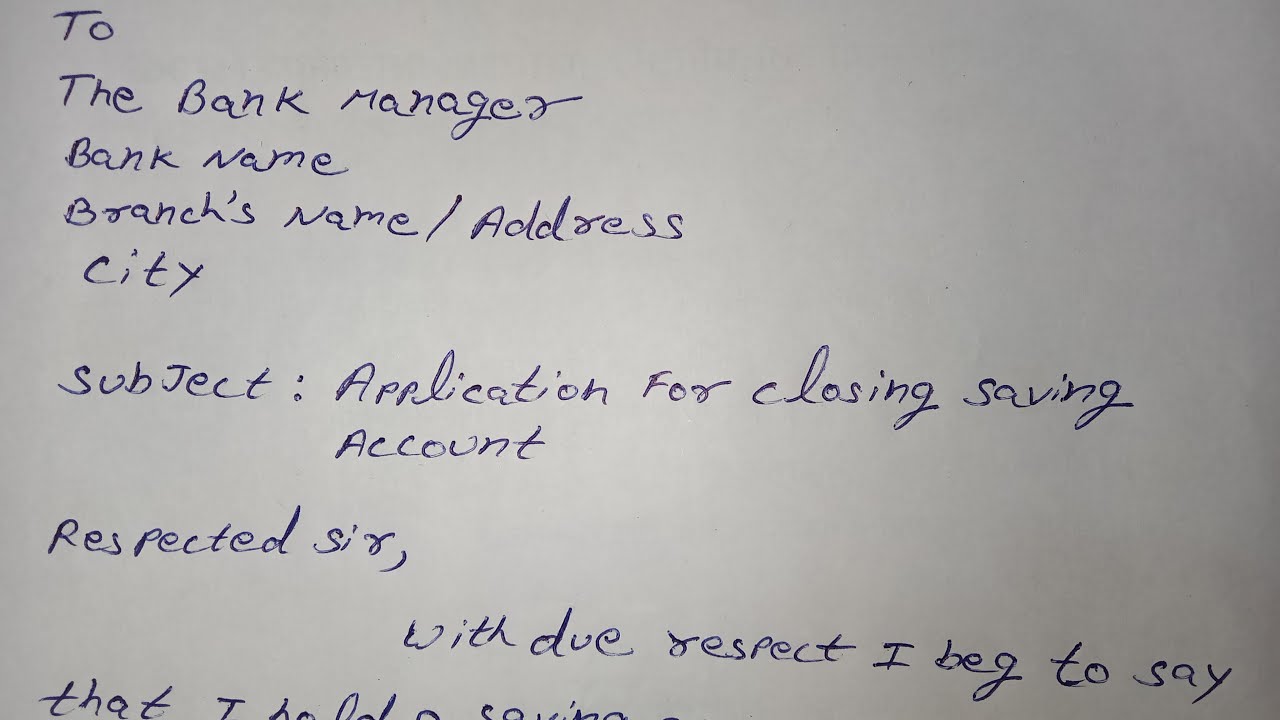 To
The Bank Manager
Bank Name
Branch's Name / Address
City
Subject : Application For closing saving
Account
Respected sir,
with due respect I beg to say
that I hold a saving